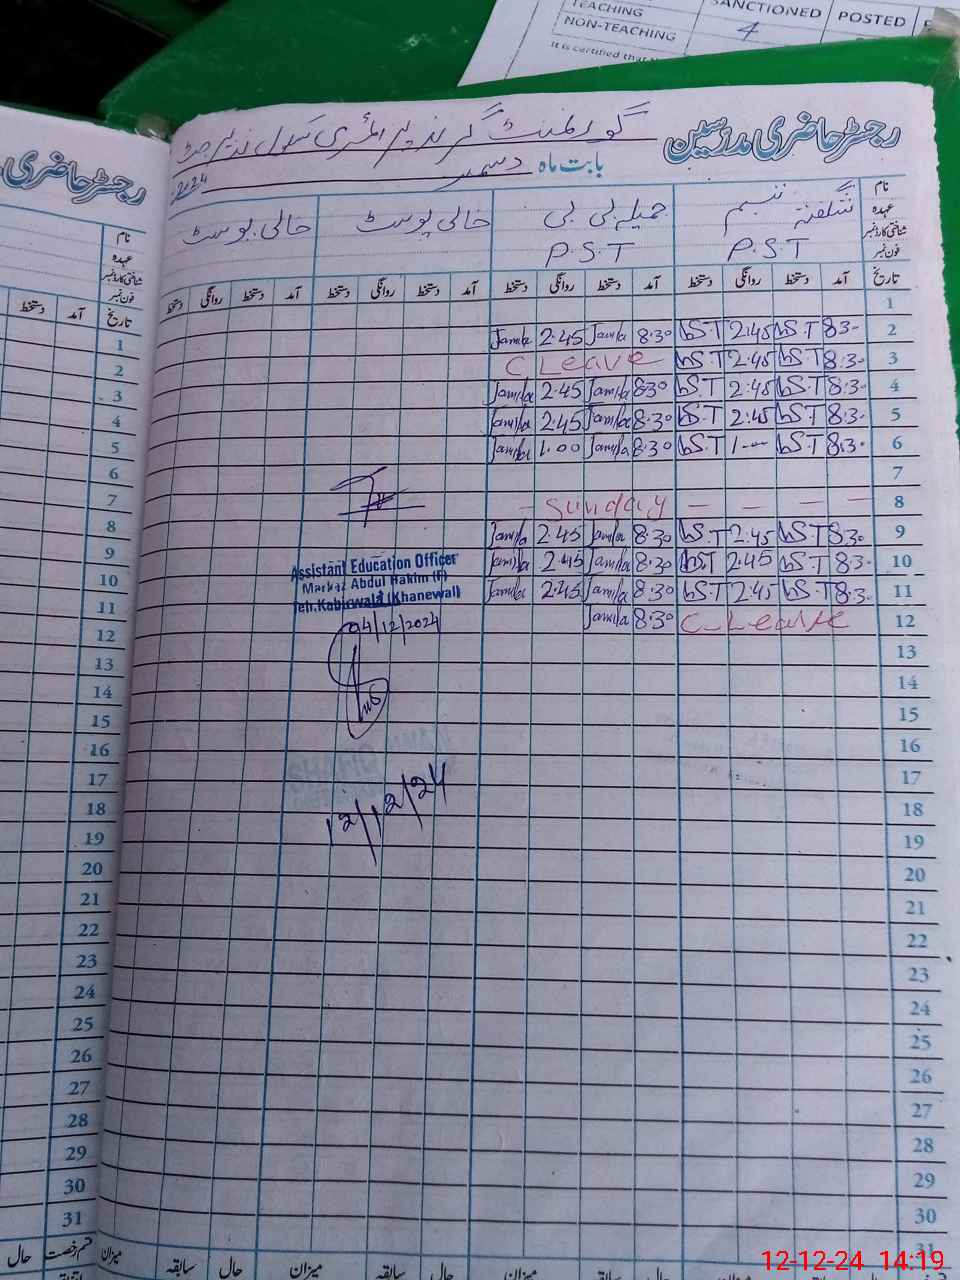 TEACHING SANCTIONED POSTED
NON-TEACHING 4
It is certified that
رجسٹر حاضری مدرسین
گورنمنٹ گرلز پرائمری سکول نذیر
بابت ماہ دسمبر 2024
رجسٹر حاضری
نام شگفتہ تبسم جمیلہ بی بی خالی پوسٹ خالی پوسٹ
عہدہ P.S.T P.S.T
شناختی کارڈ نمبر
فون نمبر
تاریخ آمد دستخط روانگی دستخط آمد دستخط روانگی دستخط آمد دستخط روانگی دستخط آمد دستخط روانگی دستخط
1
2 8.30 2.45 8.30 Jamila 2.45 Jamila
3 8.30 2.45 C Leave
4 8.30 2.45 8.30 Jamila 2.45 Jamila
5 8.30 2.45 8.30 Jamila 2.45 Jamila
6 8.30 1.00 8.30 Jamila 1.00 Jamila
7
8 - - - - Sunday -
9 8.30 2.45 8.30 Jamila 2.45 Jamila
10 8.30 2.45 8.30 Jamila 2.45 Jamila
11 8.30 2.45 8.30 Jamila 2.45 Jamila
12 C-Leave 8.30 Jamila
13
14
15
16
17
18
19
20
21
22
23
24
25
26
27
28
29
30
31
Assistant Education Officer
Markaz Abdul Hakim (F)
Teh. Kabirwala (Khanewal)
04/12/2024
12/12/24
میزان حال سابقہ میزان حال سابقہ میزان حال سابقہ
نام
عہدہ
شناختی کارڈ نمبر
فون نمبر
تاریخ آمد دستخط
1
2
3
4
5
6
7
8
9
10
11
12
13
14
15
16
17
18
19
20
21
22
23
24
25
26
27
28
29
30
31
قسم رخصت حال
12-12-24 14:19